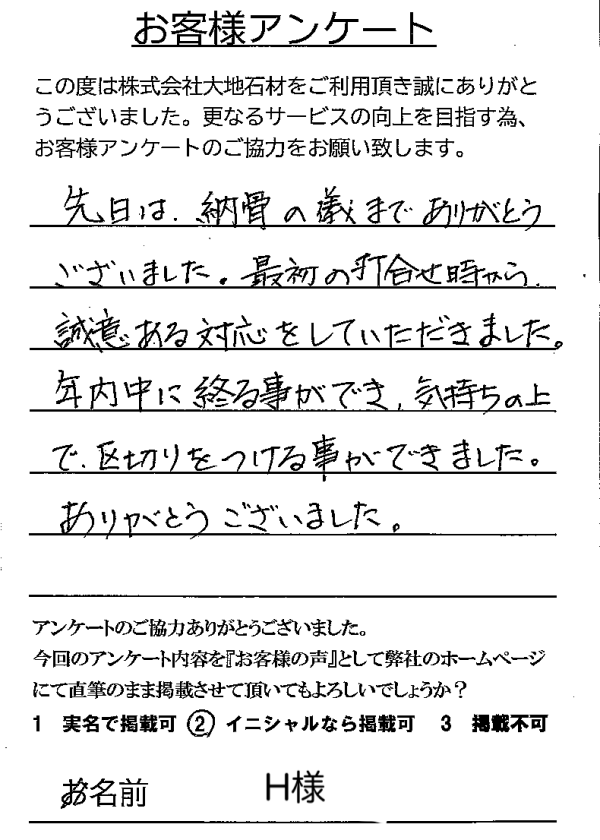 お客様アンケート
この度は株式会社大地石材をご利用頂き誠にありがと
うございました。更なるサービスの向上を目指す為、
お客様アンケートのご協力をお願い致します。
先日は、納骨の儀までありがとう
ございました。最初の打合せ時から、
誠意ある対応をしていただきました。
年内中に終る事ができ、気持ちの上
で、区切りをつける事ができました。
ありがとうございました。
アンケートのご協力ありがとうございました。
今回のアンケート内容を『お客様の声』として弊社のホームページ
にて直筆のまま掲載させて頂いてもよろしいでしょうか？
1 実名で掲載可 ② イニシャルなら掲載可 3 掲載不可
お名前 H様